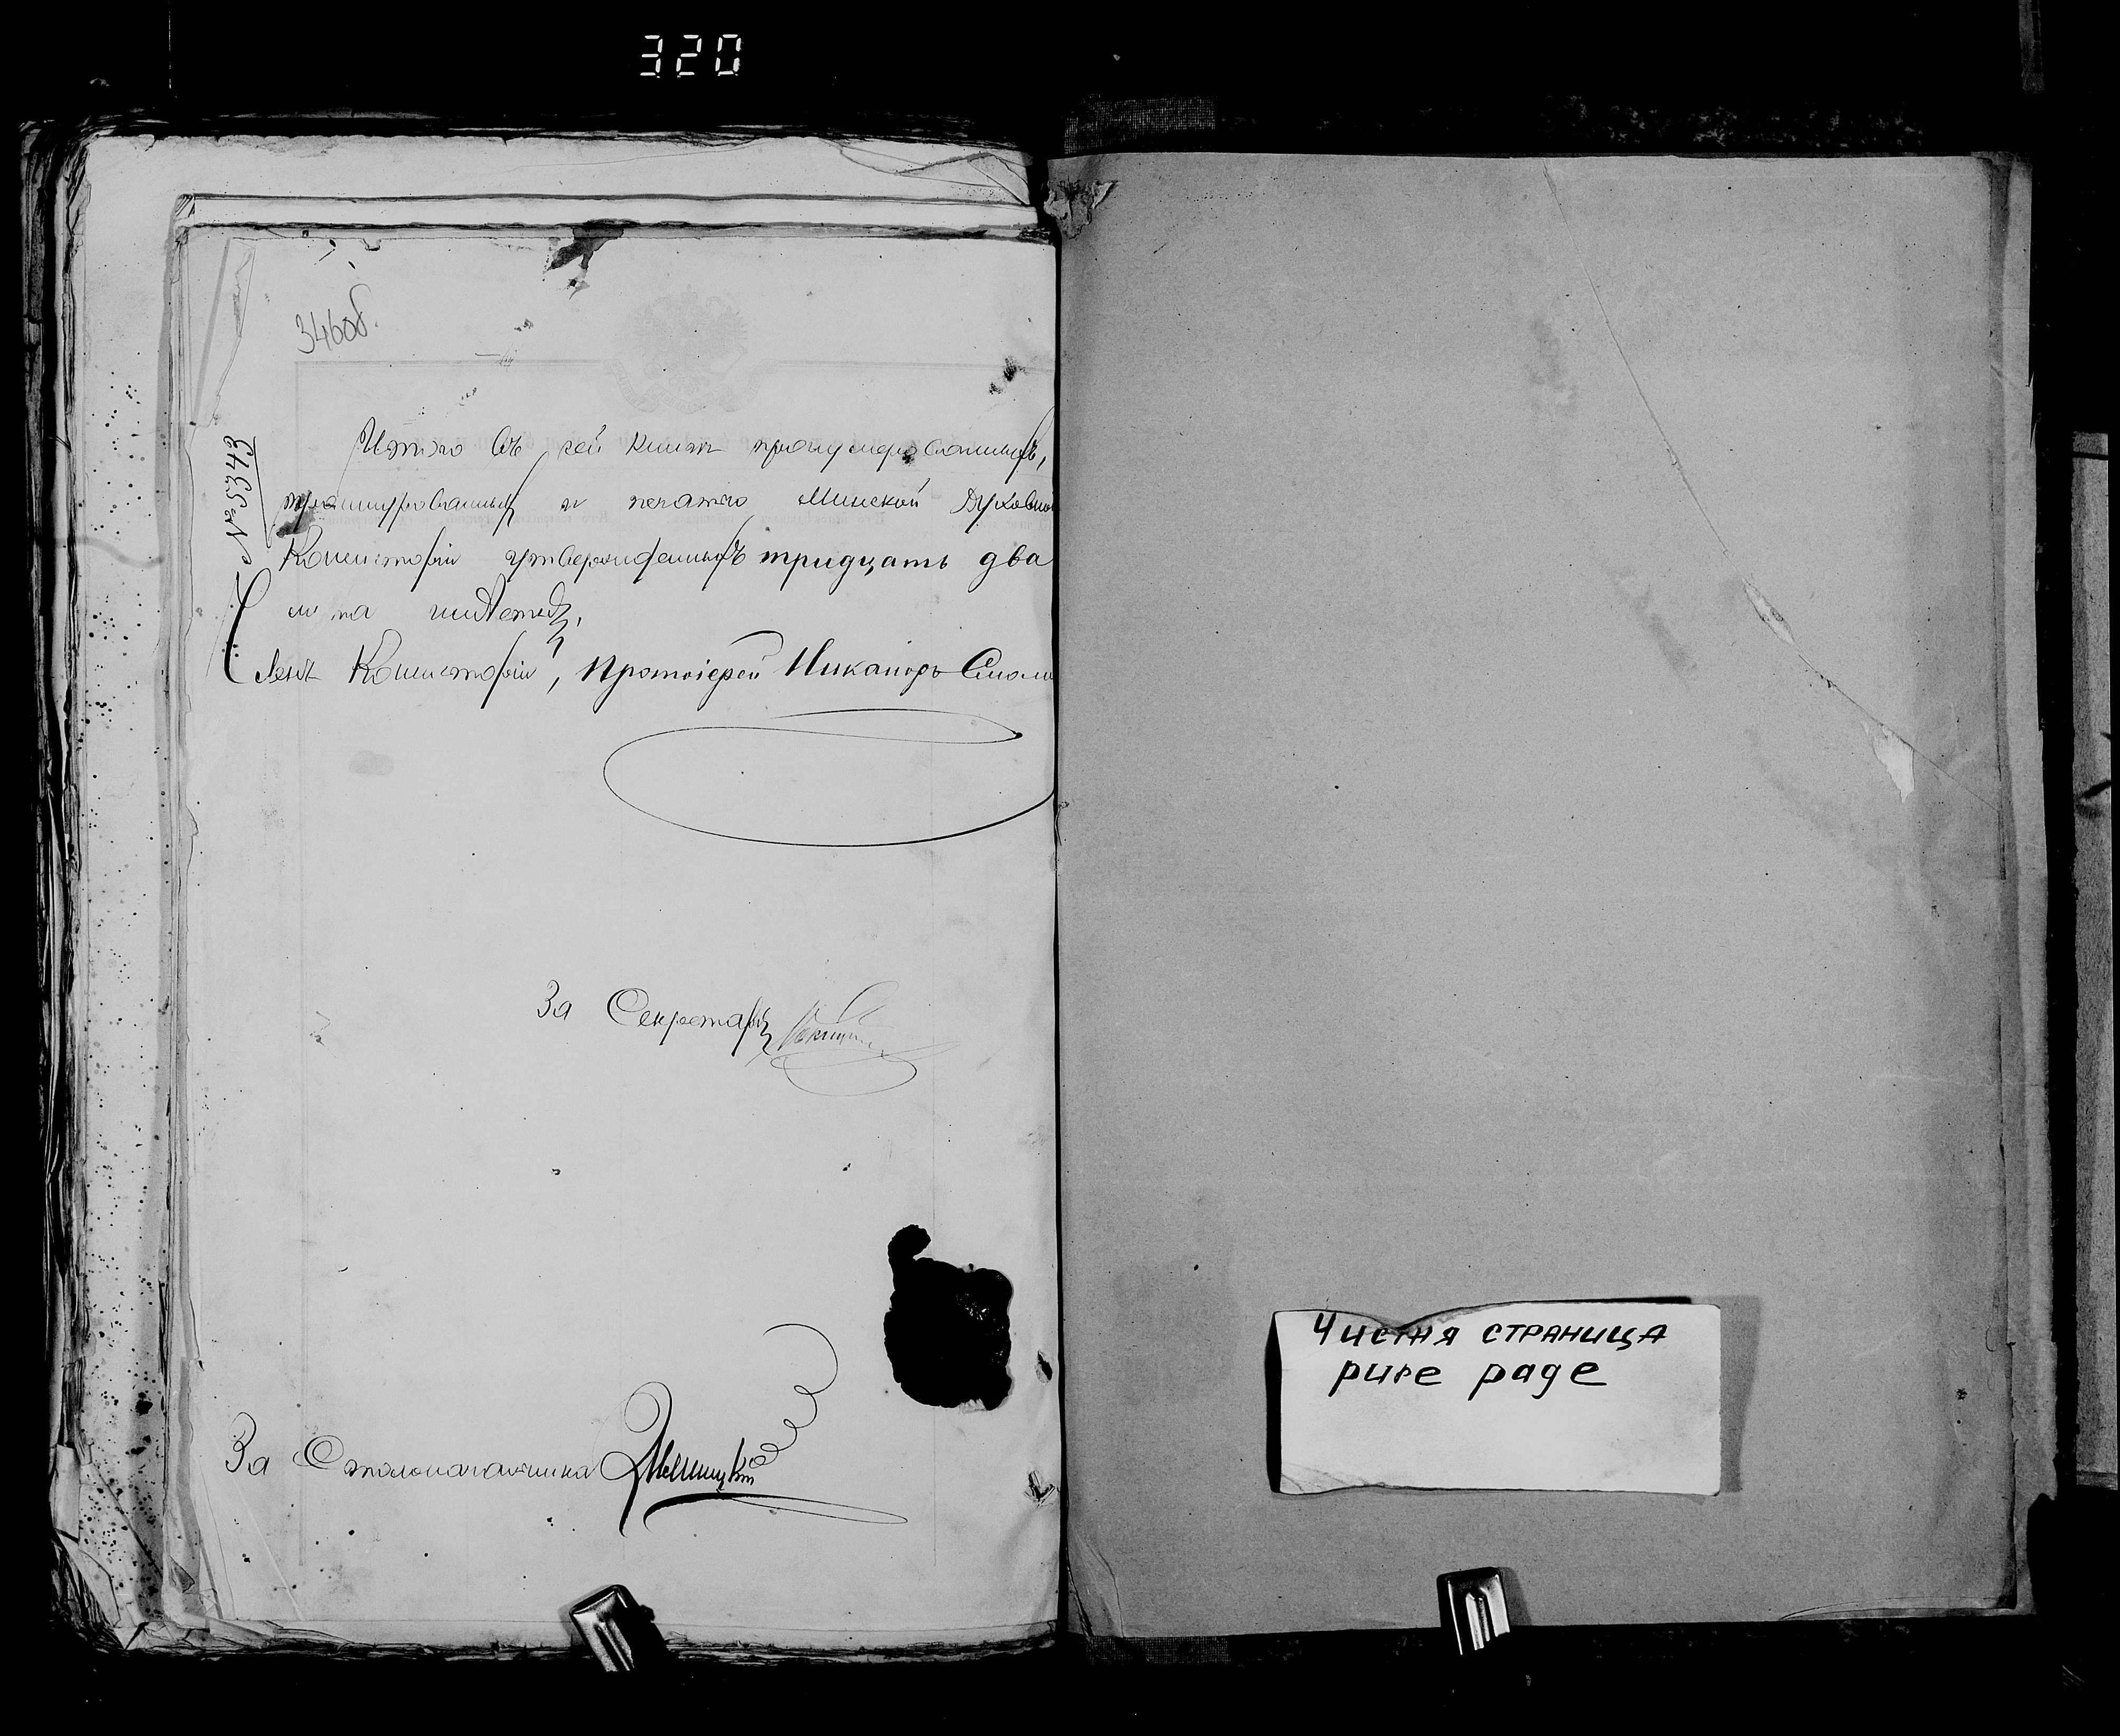 320
346об.
№ 5343
Итого въ сей книгѣ пронумерованныхъ,
прошнурованныхъ и печатью Минской Духовной
Консисторіи утвержденныхъ тридцать два
листа
Членъ Консисторіи, Протоіерей Никаноръ
За Секретаря
За Столоначальника
Чистая страница
pure page